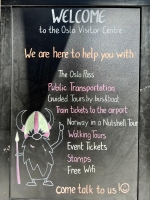 WELCOME
to the Oslo Visitor Centre
We are here to help you with
The Oslo Pass
Public Transportation
Guided Tours by bus/boat
Train tickets to the airport
Norway in a Nutshell Tour
Walking Tours
Event Tickets
Stamps
Free Wifi
come talk to us!